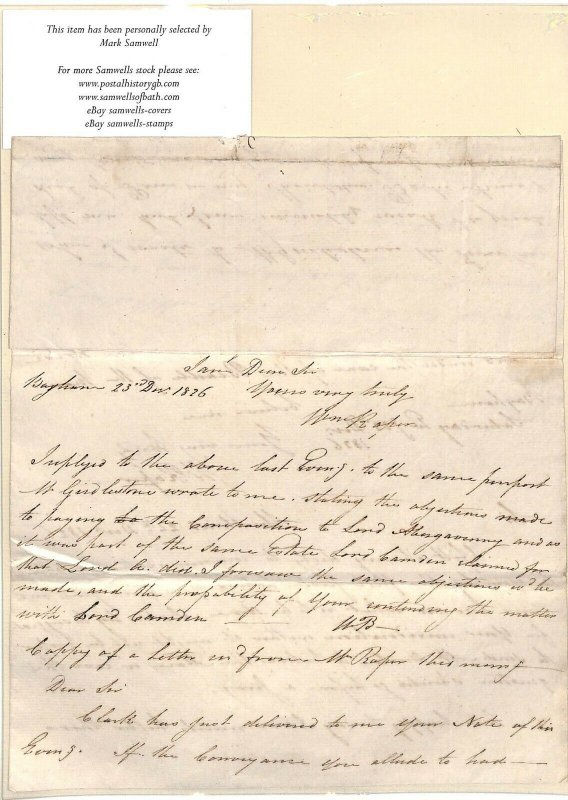 This item has been personally selected by
Mark Samwell
For more Samwells stock please see:
www.postalhistorygb.com
www.samwellsofbath.com
eBay samwells-covers
eBay samwells-stamps
I am Dear Sir
23rd Decr. 1826 Yours very truly
Wm Raper
I replyed to the above last Eveng. to the same purport
Mr Girdlestone wrote to me. stating the objections made
to paying the Composition to Lord Abergavenny and as
it was part of the same Estate Lord Camden claimed for
that Lord A. did, I foresaw the same objections wd be
made, and the probability of Your contending the matter
with Lord Camden
WB
Coppy of a Letter recd from Mr Raper this morng
Dear Sir
Clark has just delivered to me your Note of this
Eveng. If the Conveyance you allude to had